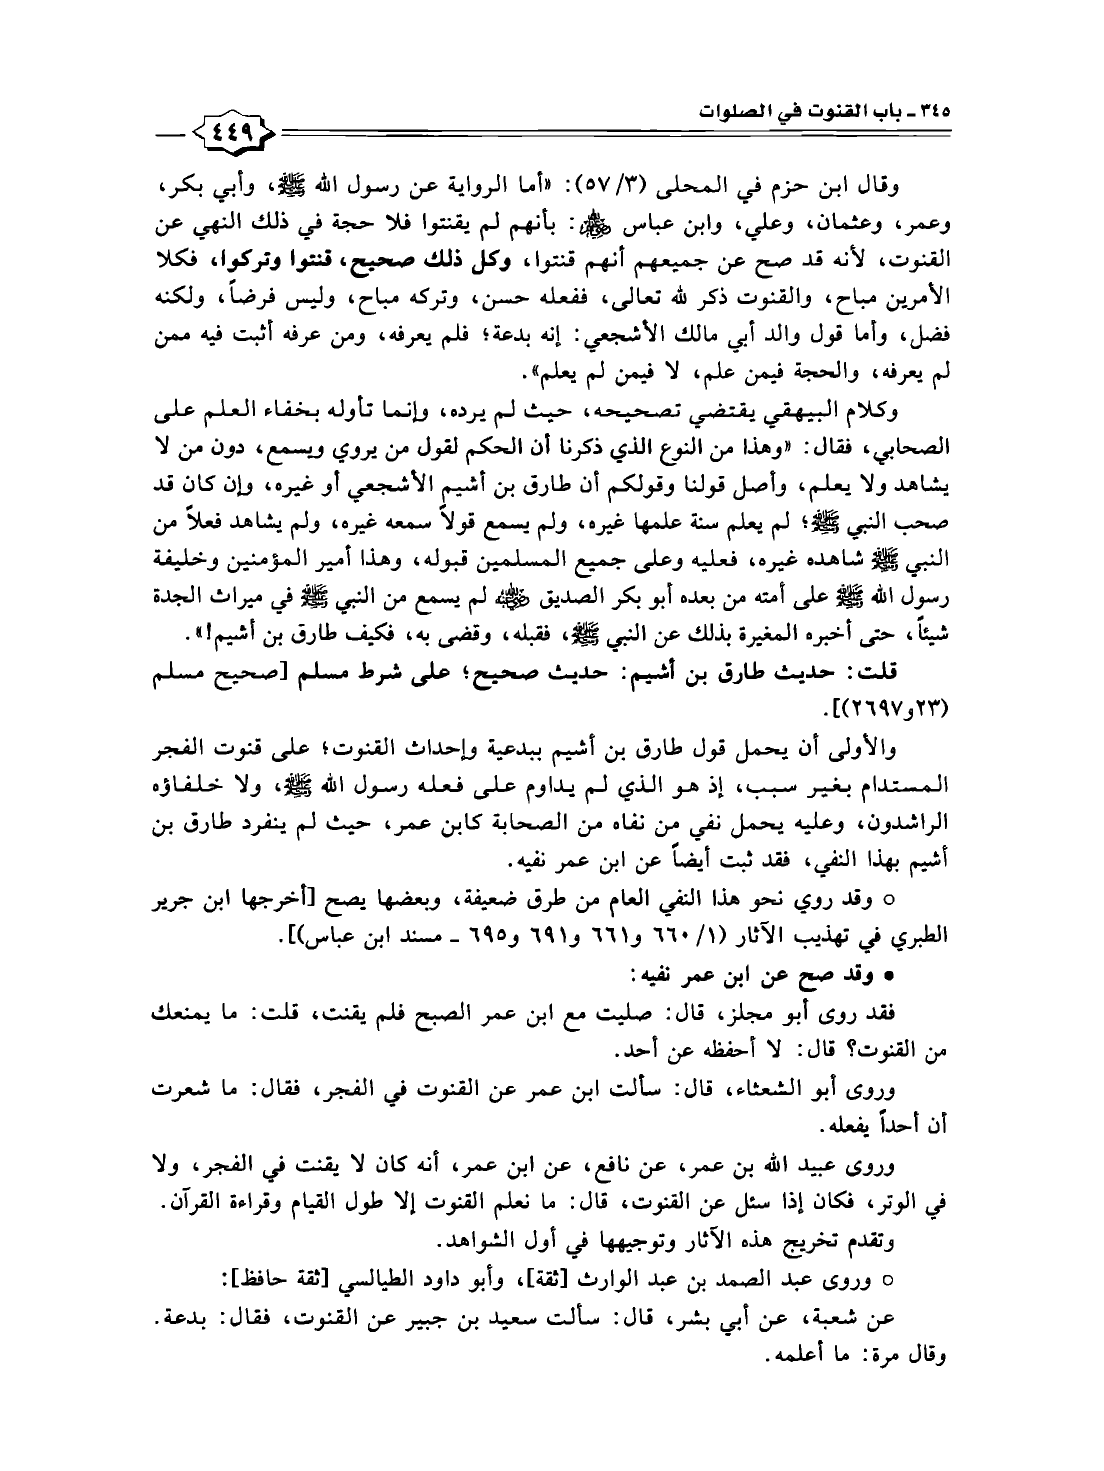 ٣٤٥ ـ باب القنوت في الصلوات
٤٤٩
وقال ابن حزم في المحلى (٣/ ٥٧): «أما الرواية عن رسول الله ﷺ، وأبي بكر،
وعمر، وعثمان، وعلي، وابن عباس ﵃: بأنهم لم يقنتوا فلا حجة في ذلك النهي عن
القنوت، لأنه قد صح عن جميعهم أنهم قنتوا، وكل ذلك صحيح، قنتوا وتركوا، فكلا
الأمرين مباح، والقنوت ذكر لله تعالى، ففعله حسن، وتركه مباح، وليس فرضاً، ولكنه
فضل، وأما قول والد أبي مالك الأشجعي: إنه بدعة؛ فلم يعرفه، ومن عرفه أثبت فيه ممن
لم يعرفه، والحجة فيمن علم، لا فيمن لم يعلم».
وكلام البيهقي يقتضي تصحيحه، حيث لم يرده، وإنما تأوله بخفاء العلم على
الصحابي، فقال: «وهذا من النوع الذي ذكرنا أن الحكم لقول من يروي ويسمع، دون من لا
يشاهد ولا يعلم، وأصل قولنا وقولكم أن طارق بن أشيم الأشجعي أو غيره، وإن كان قد
صحب النبي ﷺ؛ لم يعلم سنة علمها غيره، ولم يسمع قولاً سمعه غيره، ولم يشاهد فعلاً من
النبي ﷺ شاهده غيره، فعليه وعلى جميع المسلمين قبوله، وهذا أمير المؤمنين وخليفة
رسول الله ﷺ على أمته من بعده أبو بكر الصديق ﵁ لم يسمع من النبي ﷺ في ميراث الجدة
شيئاً، حتى أخبره المغيرة بذلك عن النبي ﷺ، فقبله، وقضى به، فكيف طارق بن أشيم!».
قلت: حديث طارق بن أشيم: حديث صحيح؛ على شرط مسلم [صحيح مسلم
(٢٣و٢٦٩٧)].
والأولى أن يحمل قول طارق بن أشيم ببدعية وإحداث القنوت؛ على قنوت الفجر
المستدام بغير سبب، إذ هو الذي لم يداوم على فعله رسول الله ﷺ، ولا خلفاؤه
الراشدون، وعليه يحمل نفي من نفاه من الصحابة كابن عمر، حيث لم ينفرد طارق بن
أشيم بهذا النفي، فقد ثبت أيضاً عن ابن عمر نفيه.
○ وقد روي نحو هذا النفي العام من طرق ضعيفة، وبعضها يصح [أخرجها ابن جرير
الطبري في تهذيب الآثار (١/ ٦٦٠ و٦٦١ و٦٩١ و٦٩٥ ـ مسند ابن عباس)].
• وقد صح عن ابن عمر نفيه:
فقد روى أبو مجلز، قال: صليت مع ابن عمر الصبح فلم يقنت، قلت: ما يمنعك
من القنوت؟ قال: لا أحفظه عن أحد.
وروى أبو الشعثاء، قال: سألت ابن عمر عن القنوت في الفجر، فقال: ما شعرت
أن أحداً يفعله.
وروى عبيد الله بن عمر، عن نافع، عن ابن عمر، أنه كان لا يقنت في الفجر، ولا
في الوتر، فكان إذا سئل عن القنوت، قال: ما نعلم القنوت إلا طول القيام وقراءة القرآن.
وتقدم تخريج هذه الآثار وتوجيهها في أول الشواهد.
○ وروى عبد الصمد بن عبد الوارث [ثقة]، وأبو داود الطيالسي [ثقة حافظ]:
عن شعبة، عن أبي بشر، قال: سألت سعيد بن جبير عن القنوت، فقال: بدعة.
وقال مرة: ما أعلمه.